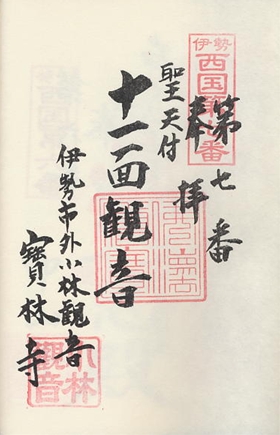 伊勢
西国第七番
奉拝
第七番
聖天付
十一面観音
伊勢市外小林観音
寳林寺
小林
観音